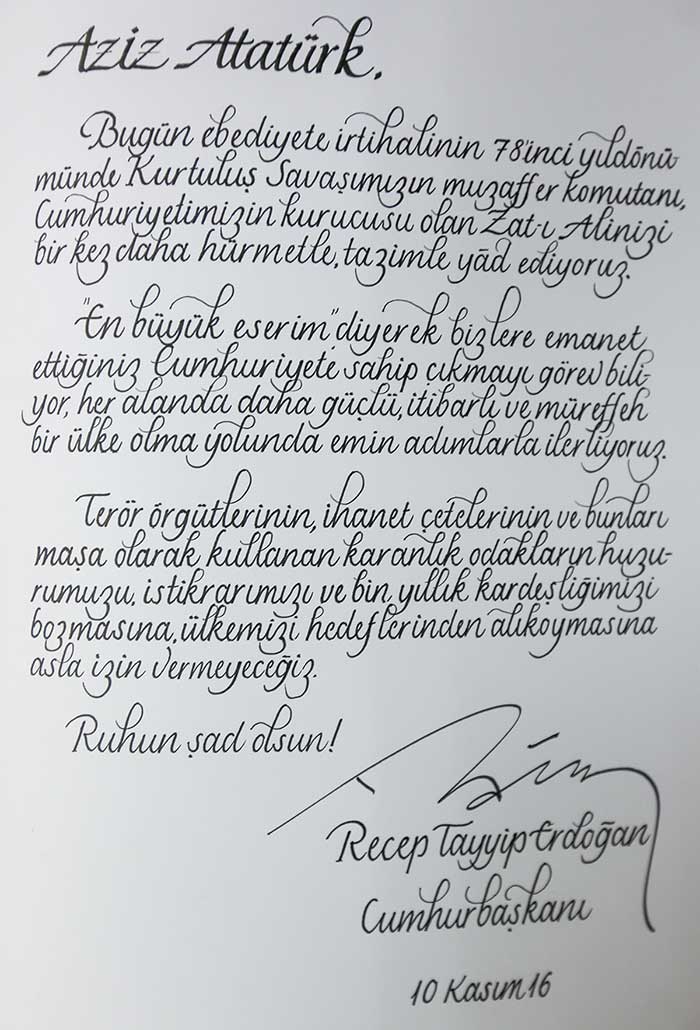 Aziz Atatürk,
Bugün ebediyete irtihalinin 78'inci yıldönü
münde Kurtuluş Savaşımızın muzaffer komutanı,
Cumhuriyetimizin kurucusu olan Zat-ı Alinizi
bir kez daha hürmetle, tazimle yâd ediyoruz.
"En büyük eserim" diyerek bizlere emanet
ettiğiniz Cumhuriyete sahip çıkmayı görev bili-
yor, her alanda daha güçlü, itibarlı ve müreffeh
bir ülke olma yolunda emin adımlarla ilerliyoruz.
Terör örgütlerinin, ihanet çetelerinin ve bunları
maşa olarak kullanan karanlık odakların huzu-
rumuzu, istikrarımızı ve bin yıllık kardeşliğimizi
bozmasına, ülkemizi hedeflerinden alıkoymasına
asla izin vermeyeceğiz.
Ruhun şad olsun!
Recep Tayyip Erdoğan
Cumhurbaşkanı
10 Kasım 16